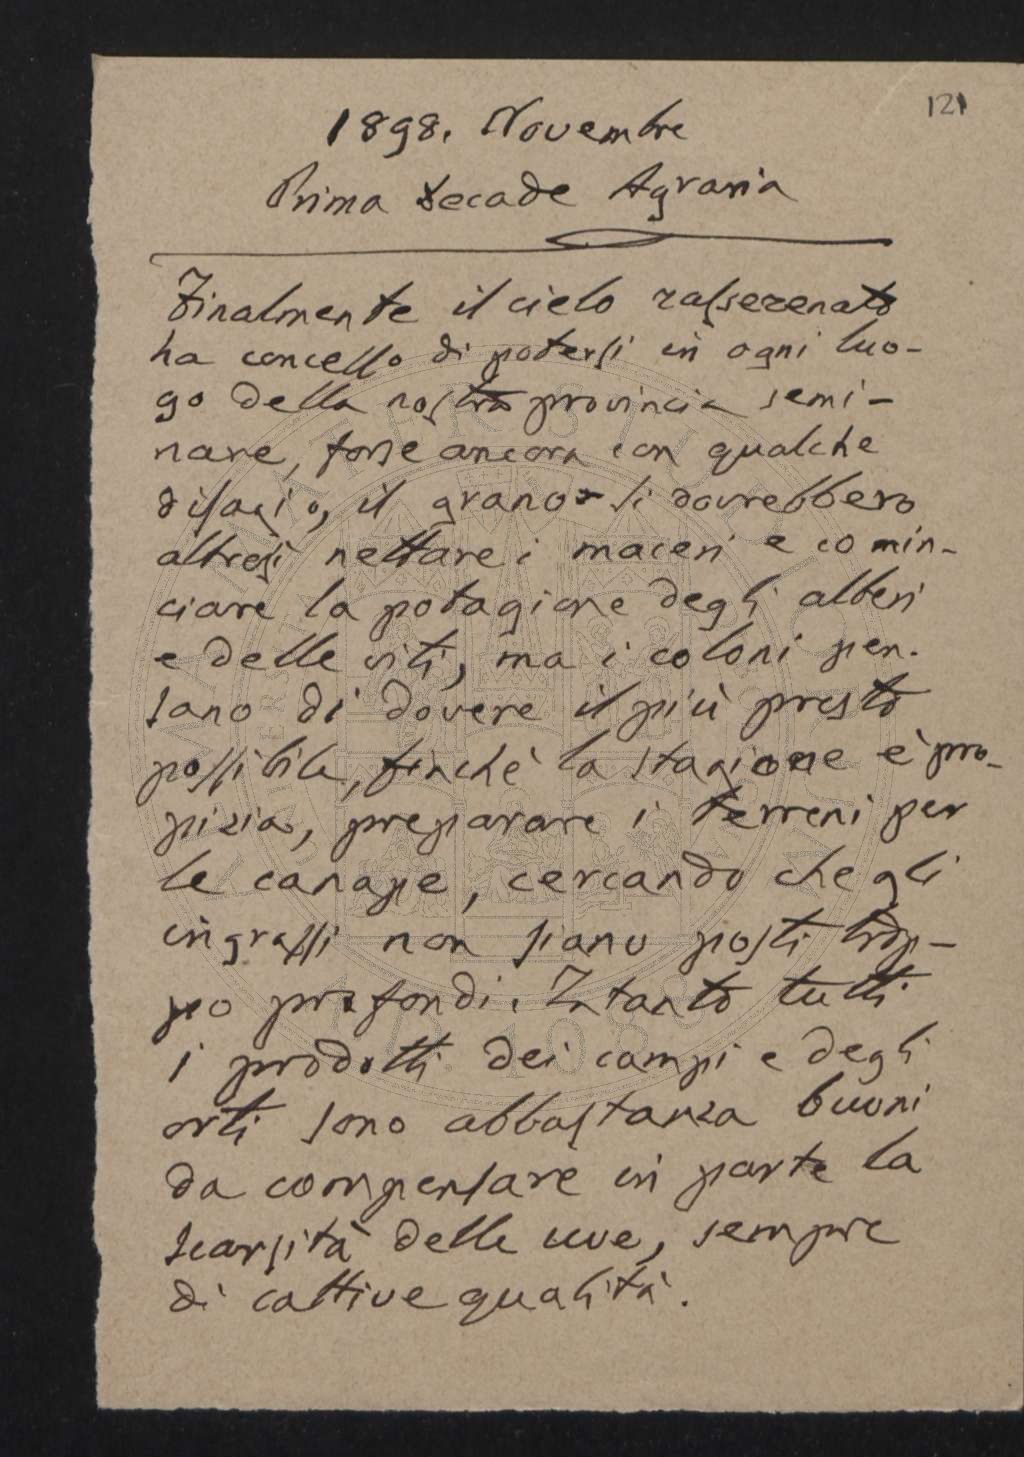 121
1898. Novembre
Prima decade Agraria
Finalmente il cielo rasserenato
ha concesso di potersi in ogni luo-
go della nostra provincia semi-
nare, forse ancora con qualche
disagio, il grano. Si dovrebbero
altresì nettare i maceri e comin-
ciare la potagione degli alberi
e delle viti, ma i coloni pen-
sano di dovere il più presto
possibile, finchè la stagione è pro-
pizia, preparare i terreni per
le canape, cercando che gli
ingrassi non siano posti trop-
po profondi. Intanto tutti
i prodotti dei campi e degli
orti sono abbastanza buoni
da compensare in parte la
scarsità delle uve, sempre
di cattive qualità.